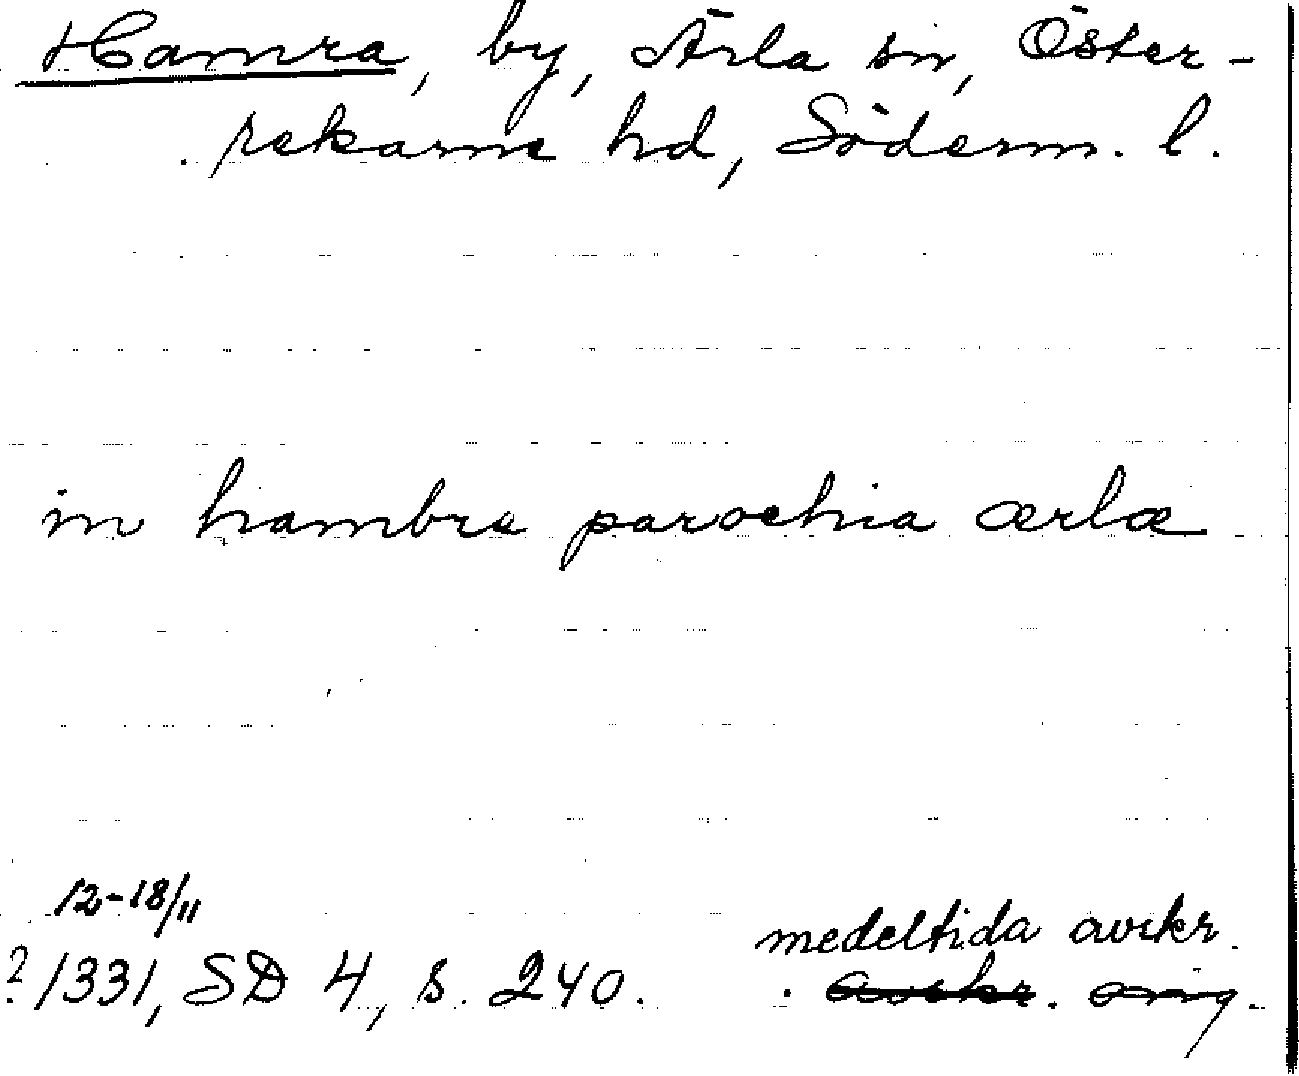 Hamra, by, Ärla sn, Öster-
rekarne hd, Söderm. l.
in hambre parochia ærlæ
12-18/11
? 1331, SD 4, s. 240.
medeltida avskr.
avskr. orig.